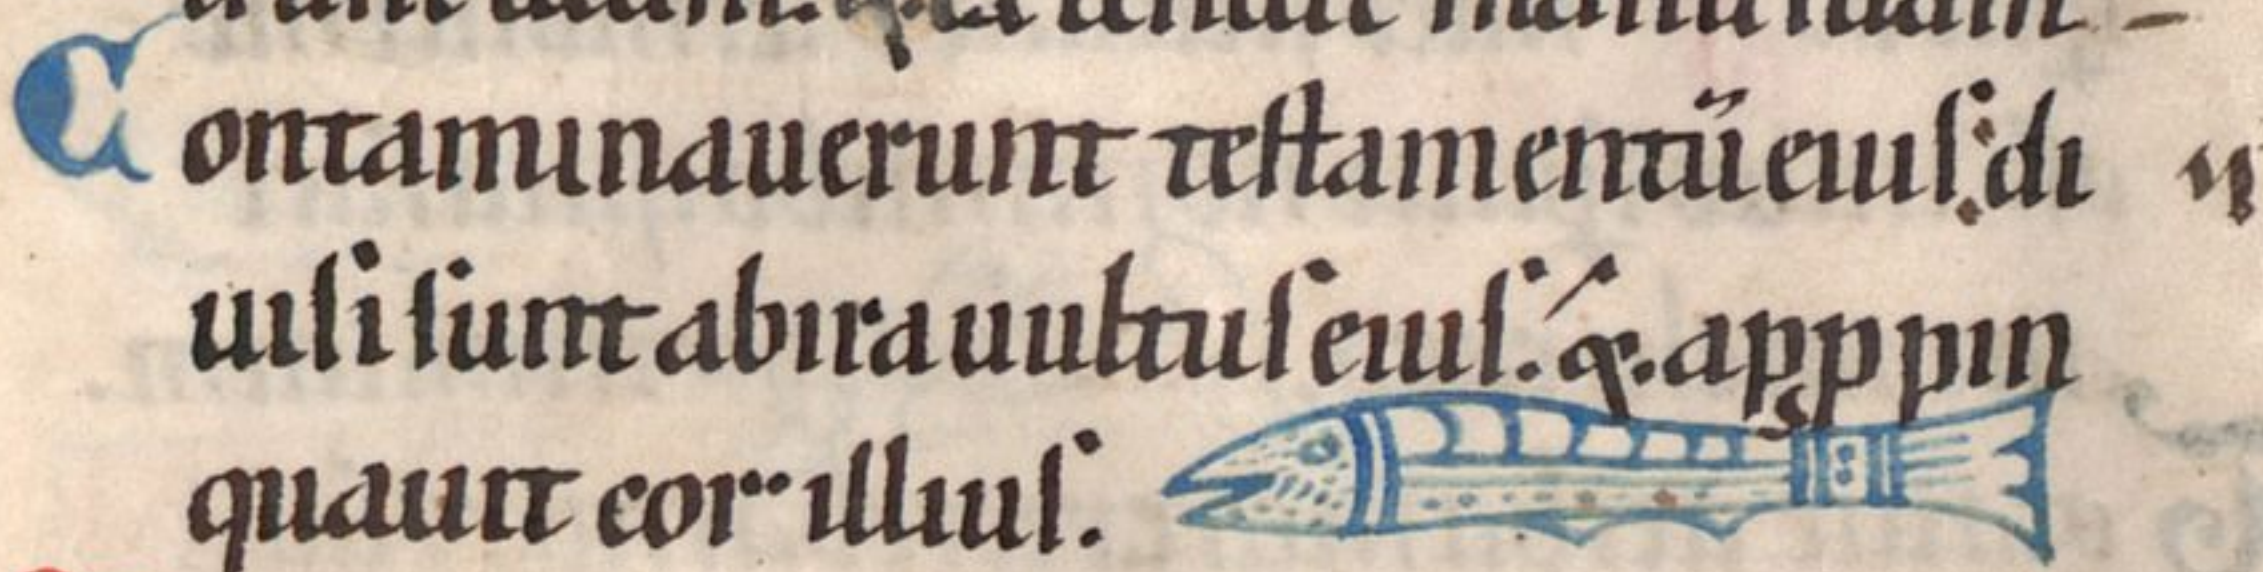 tendit manu suam
Contaminauerunt testamentū eius; di
uisi sunt ab ira uultus eius. q. apꝓpin
quauit cor illius.